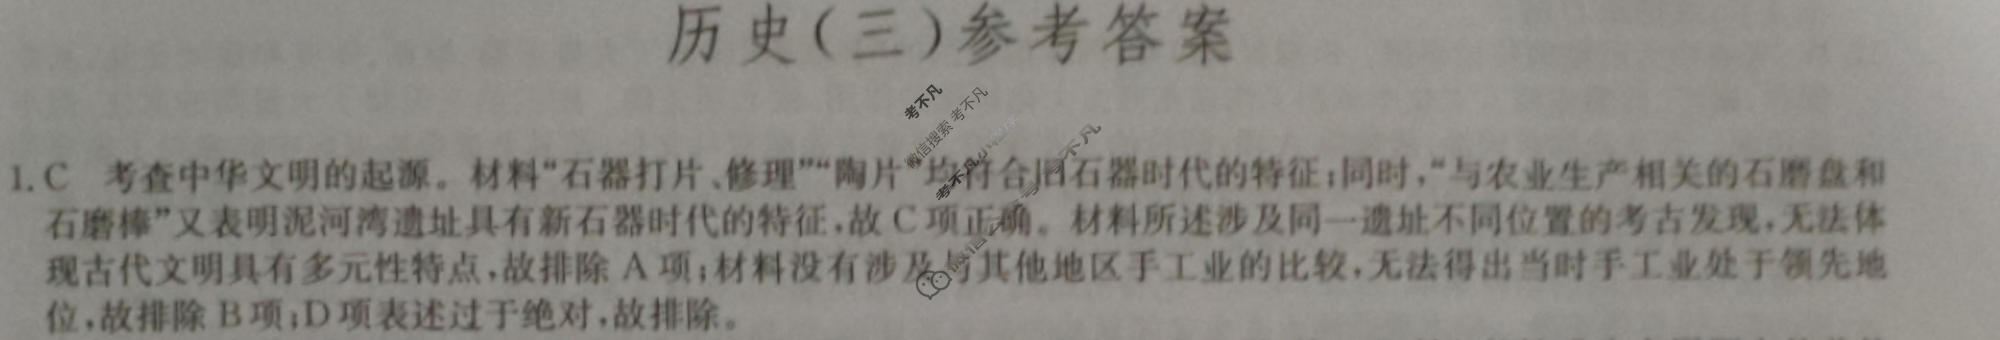 历史(三)参考答案
考不凡
微信搜索 考不凡
1. C 考查中华文明的起源。材料“石器打片、修理”“陶片”均符合旧石器时代的特征;同时,“与农业生产相关的石磨盘和
石磨棒”又表明泥河湾遗址具有新石器时代的特征,故 C 项正确。材料所述涉及同一遗址不同位置的考古发现,无法体
现古代文明具有多元性特点,故排除 A 项;材料没有涉及与其他地区手工业的比较,无法得出当时手工业处于领先地
位,故排除 B 项;D 项表述过于绝对,故排除。